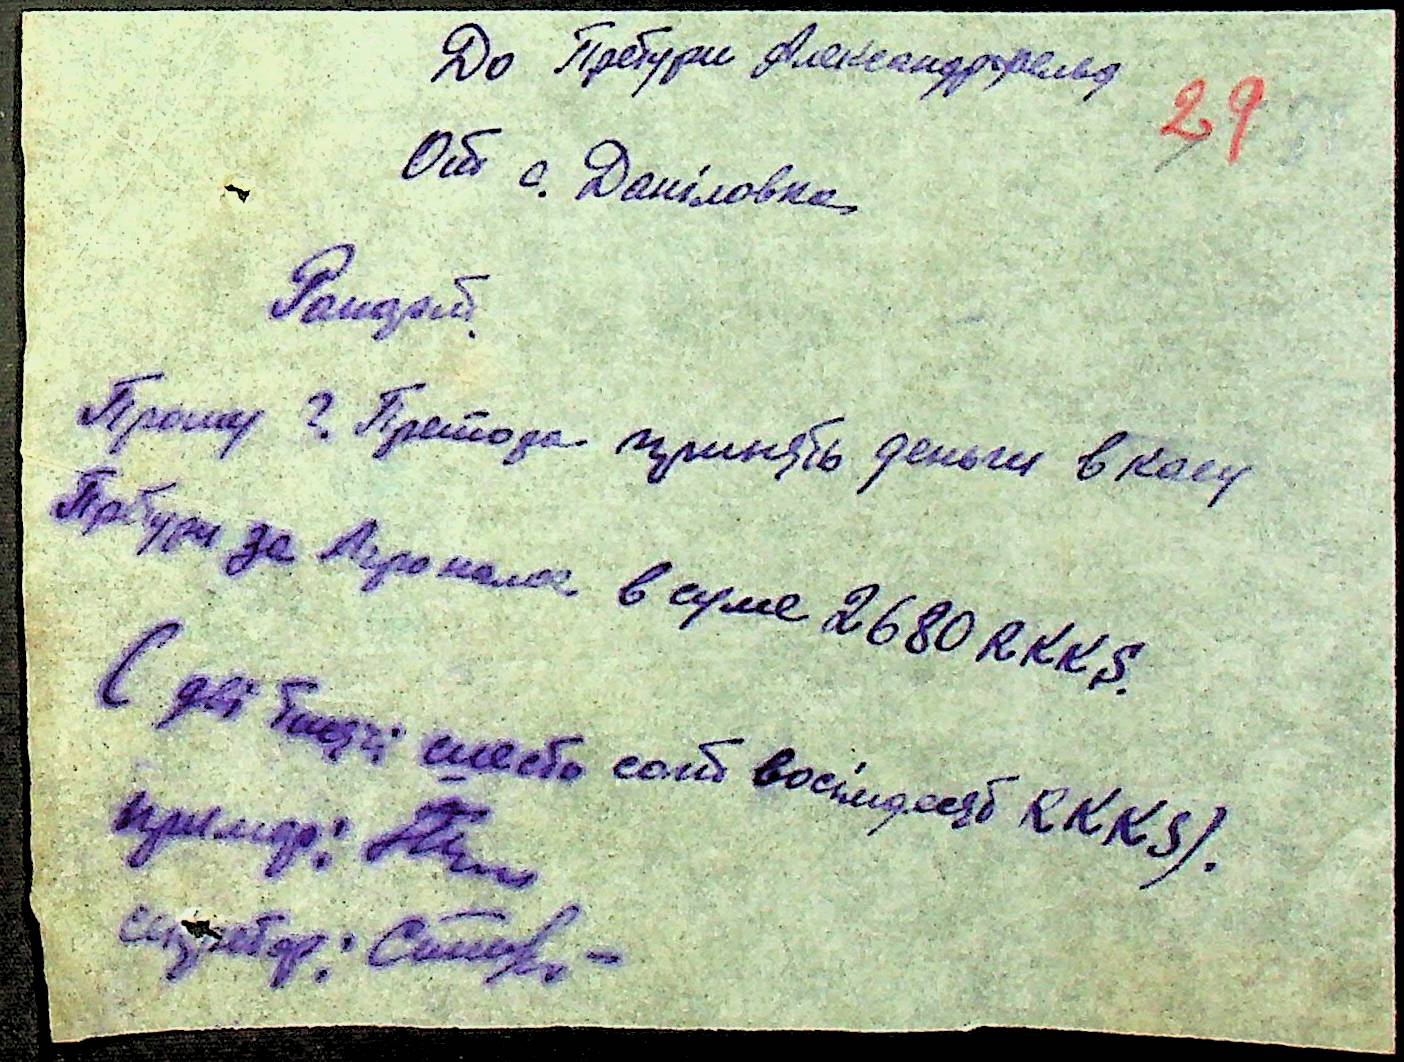 До Претури Александрфельд
29
От с. Даніловка
Рапорт.
Прошу г. Претора принять деньги в касу
Претури за Агроналог в суме 2680 RKKS.
( две тисячі шесть сот восімдесят RKKS).
примар:
секретар: